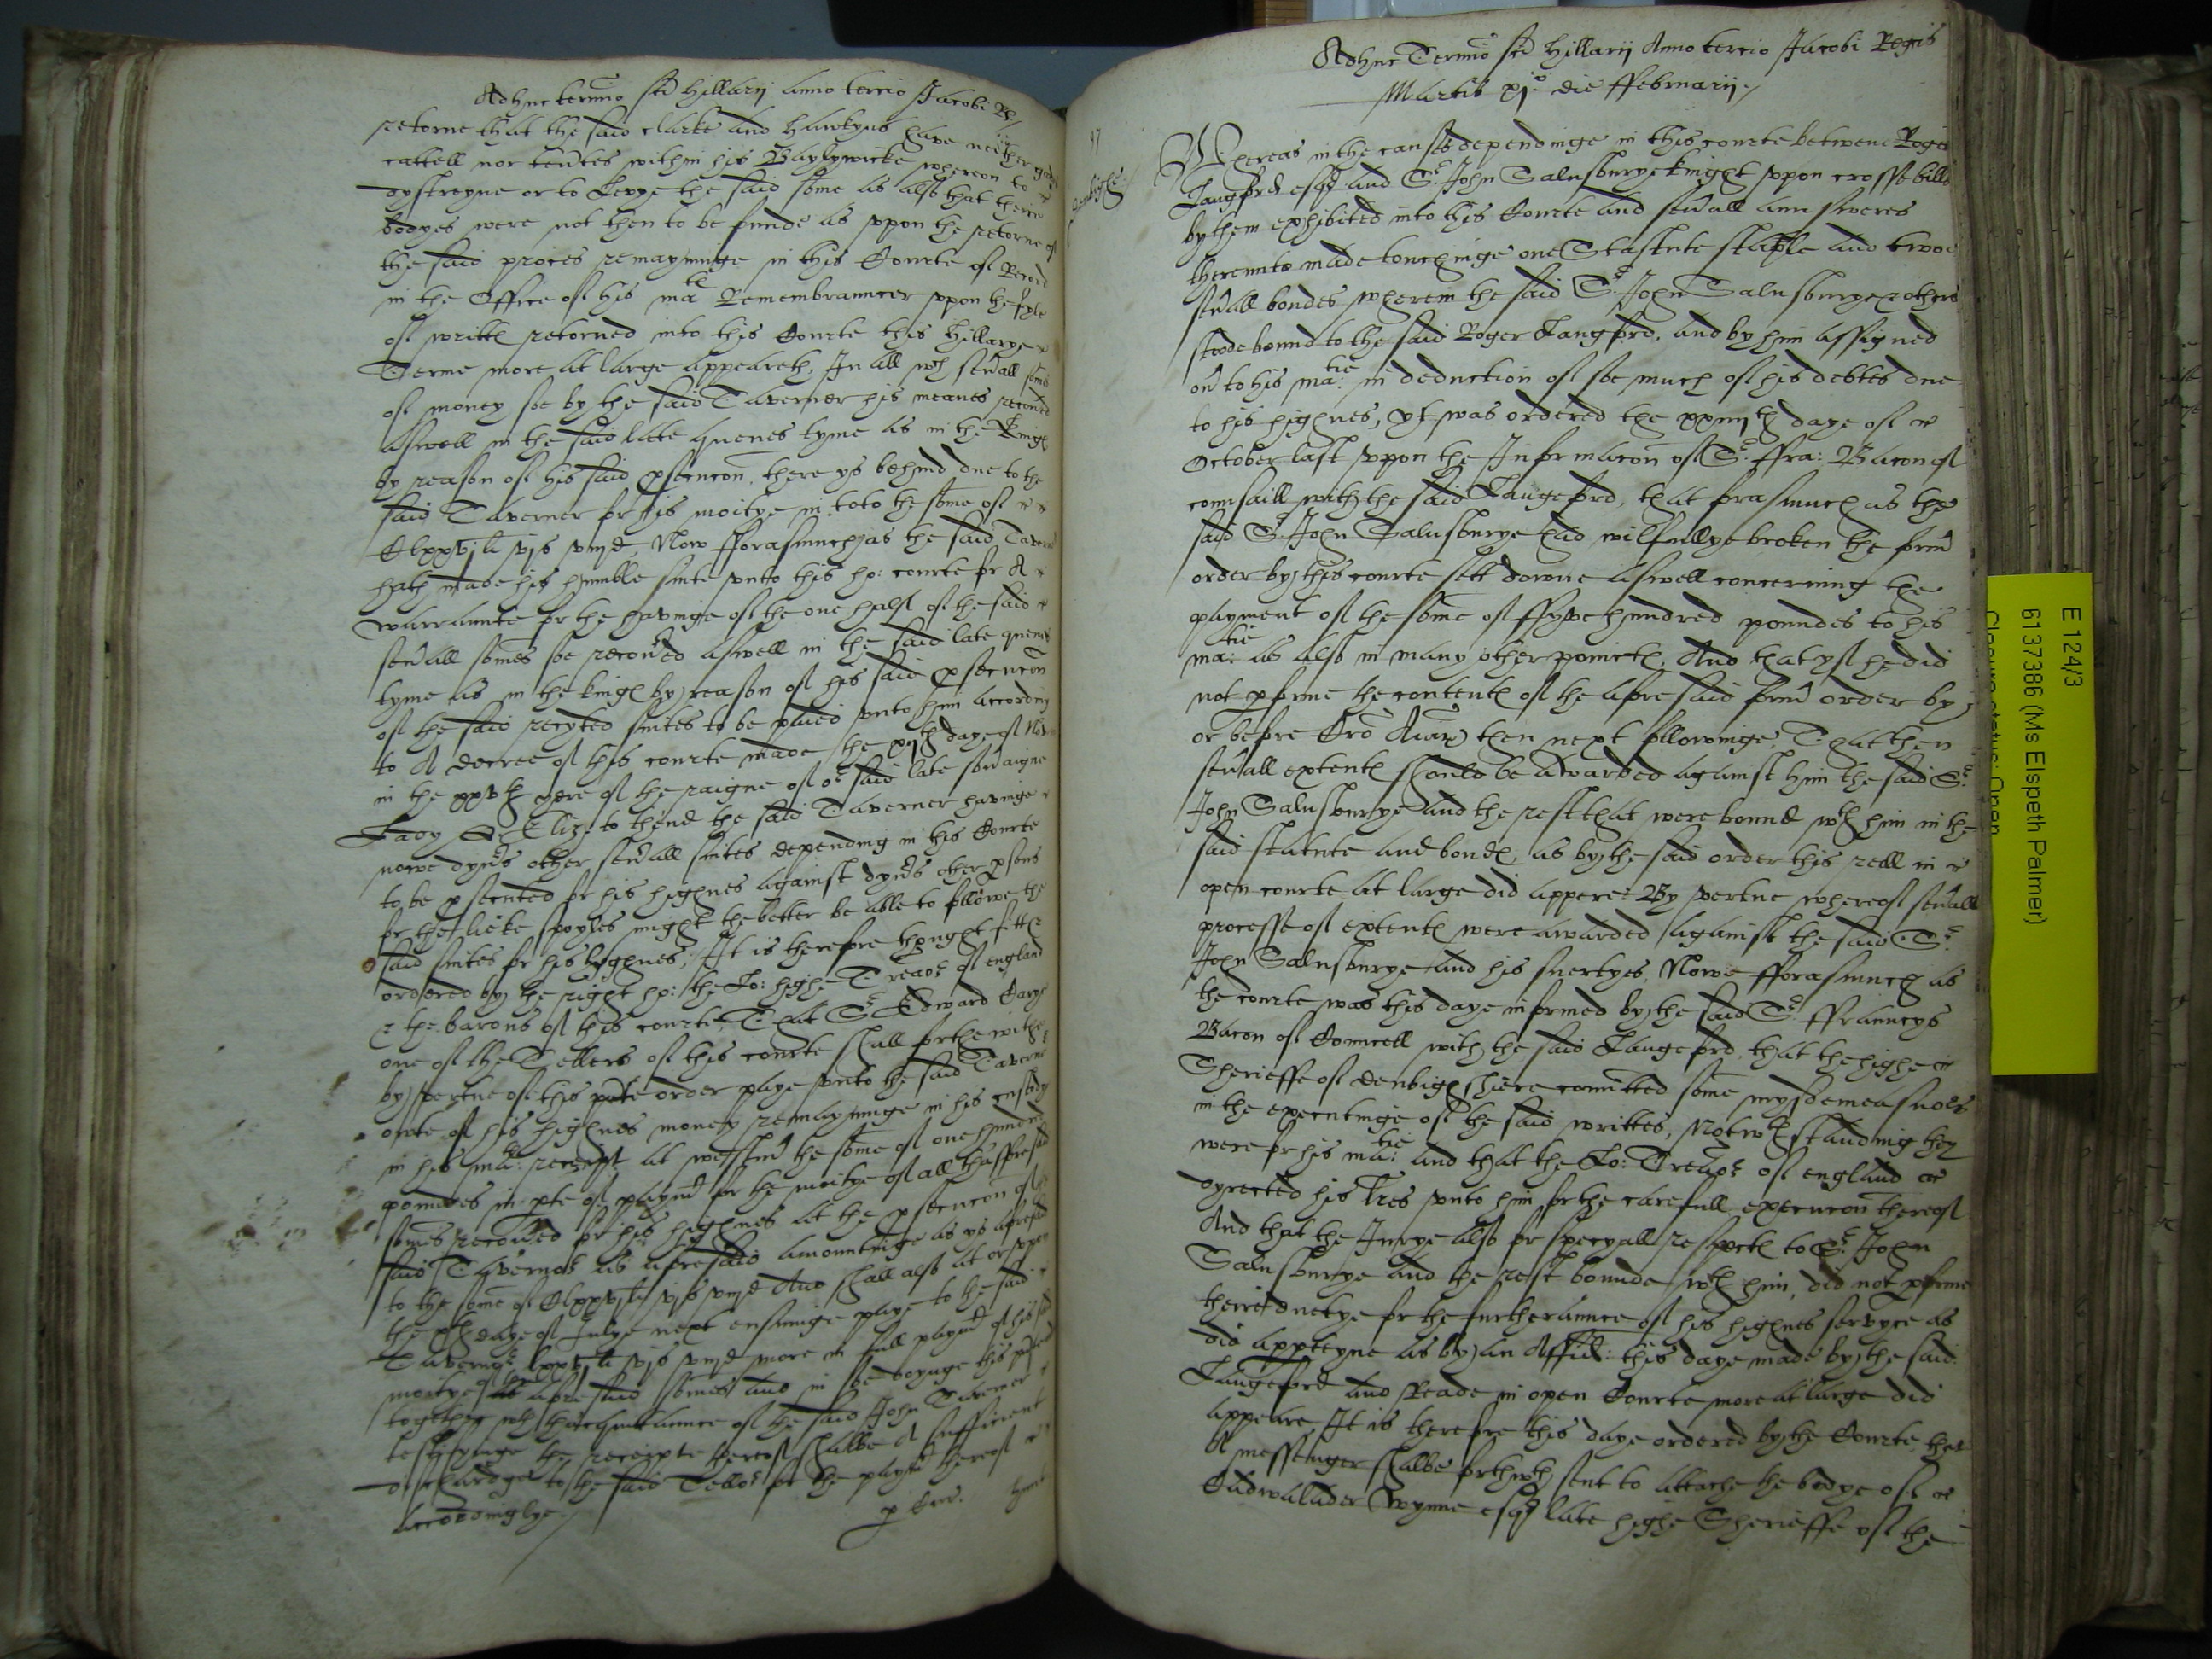 Adhuc termino sci Hillarij anno tercio Jacobi R.
retorne that the said Clarke and Hawkyns have neither
cattell nor tentes within his Baylywicke whereon to
dystreyne or to Levye the said some as also that their
bodyes were not then to be funde as uppon the retorne of
the said proces remayninge in this Courte of Record
in the Office of his matie Remembrauncer uppon the fyle
of writtes retorned into this Courte this Hillarye
Terme more at large appeareth, In all wch sevall somes
of money soe by the said Taverner his meanes recoved
aswell in the said late quenes tyme as in the Kinges
by reason of his said psecucon, there ys behind due to the
said Taverner for his moitye in toto the some of
Clxxvjli vjs viijd, Now fforasmuch as the said Taverner
hath made his humble suite unto this ho: courte for A
warraunte for the havinge of the one half of the said
sevall somes soe recoved aswell in the said late quenes
tyme as in the kinges by reason of his said psecucon
of the said recyted suites to be paied unto him accordng
to A decree of this courte made the xijth daye of Nov
in the xxvth yere of the raigne of or said late sovaigne
Lady Q: Eliz: to thend the said Taverner havinge
nowe dyvrs other sevall suites depending in this Courte
to be psecuted for his highnes against dyvrs other psons
for the licke spoyles might the better be able to followe the
said suites for his hyghnes; It is therefore thought fitt &
ordered by the right ho: the Lo: highe Treaor of england
& the barons of this courte That Sr Edward Carye
one of the Tellers of this courte shall forthewith
by vertue of this pnte order paye unto the said Taverner
owte of his highnes money remayninge in his custody
in his matie receipt at westm the some of one hundred
poundes in pte of paymt for the moitye of all thafforesaid
somes recoved for his highnes at the psecucon of
said Tavernor as aforesaid amountinge as ys aforesaid
to the some of Clxxvjli vjs viijd And shall also at or uppon
the xth daye of Julye next ensuinge paye to the said
Tavernor lxxvjli vjs viijd more in full paymt of his said
moitye of the aforesaid somes and in soe doynge this pnte
together wth thacquitaunce of the said John Taverner
testifyinge the receipte thereof shalbe A sufficient
dischardge to the said Tellor for the paymt thereof
accordinglye./
p Cur.
97
Denbighe
Adhuc Termino sci Hillarij Anno tercio Jacobi Regis
Martis xjo die ffebruarij./
Whereas in the causes dependinge in this courte betwene Roger
Langford esqr and Sr John Salusburye knight uppon crosse bills
by them exhibited into this Courte and sevall aunsweres
thereunto made touchinge one Stastute staple and twoe
sevall bondes wherein the said Sr John Salusburye & others
stoode bound to the said Roger Langford, and by him assigned
ov to his matie: in deduction of soe much of his debtes due
to his highnes, yt was ordered the xxiiijth daye of
October last uppon the Informacon of Sr ffra: Bacon of
counsaill with the said Langeford, that forasmuch as the
said Sr John Salusburye had wilfullye broken the formr
order by this courte sett downe aswell concerning the
payment of the some of ffyve hundred poundes to his
matie: as also in many other poinctes, And that yf he did
not pforme the contentes of the aforesaid formr order by
or before Cro Aiar then next followinge, That then
sevall extentes should be awarded against him the said Sr
John Salusburye and the rest that were bound wth him in the
said statute and bondes, as by the said order this redd in
open courte at large did appere: By vertue whereof sevall
processe of extentes were awarded against the said Sr
John Salusburye and his suertyes, Nowe fforasmuch as
the courte was this daye informed by the said Sr ffrauncys
Bacon of Councell with the said Langeford, that the highe
Sherieffe of denbigh shiere comitted some mysdemeasnors
in the executinge of the said writtes, Notwthstanding they
were for his matie: and that the Lo: Treaor of england
dyrected his lres unto him for the carefull execucon thereof
And that the Jurye also for specyall respectes to Sr John
Salusburye and the rest bounde wth him, did not pforme
their duetye for the furtheraunce of his highnes servyce as
did appteyne as by an Affid: this daye made by the said
Langeford and Reade in open Courte more at large did
appeare, It is therefore this daye ordered by the Courte, that
A messenger shalbe forthwth sent to attache the bodye of
Cadwalader Wynne esqr late highe Sherieffe of the
E 124/3
6137386 (Ms Elspeth Palmer)
Closure status: Open